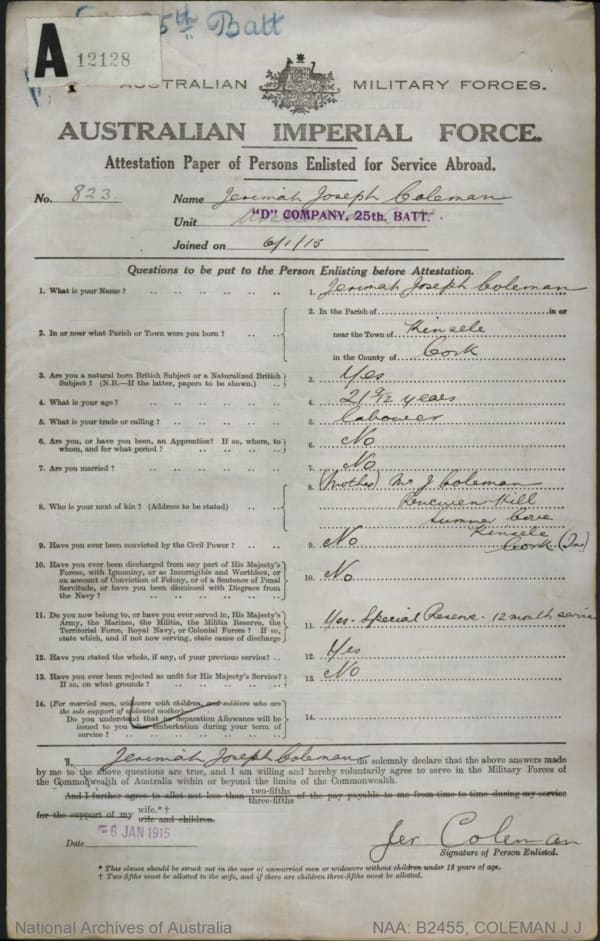 25th Batt
A 12128
AUSTRALIAN MILITARY FORCES.
AUSTRALIAN IMPERIAL FORCE.
Attestation Paper of Persons Enlisted for Service Abroad.
No. 823. Name Jerimah Joseph Coleman
Unit "D" COMPANY, 25th. BATT.
Joined on 6/1/15
Questions to be put to the Person Enlisting before Attestation.
1. What is your Name? 1. Jerimah Joseph Coleman
2. In or near what Parish or Town were you born? 2. In the Parish of in or
near the Town of Kinsele
in the County of Cork
3. Are you a natural born British Subject or a Naturalized British
Subject? (N.B.—If the latter, papers to be shown.) 3. Yes
4. What is your age? 4. 21 9/12 years
5. What is your trade or calling? 5. Labower
6. Are you, or have you been, an Apprentice? If so, where, to
whom, and for what period? 6. No
7. Are you married? 7. No
8. Who is your next of kin? (Address to be stated) 8. (Mother) Mrs J Coleman
Hill
Summer Cove
Kinsele
Cork
9. Have you ever been convicted by the Civil Power? 9. No
10. Have you ever been discharged from any part of His Majesty's
Forces, with Ignominy, or as Incorrigible and Worthless, or
on account of Conviction of Felony, or of a Sentence of Penal
Servitude, or have you been dismissed with Disgrace from
the Navy? 10. No
11. Do you now belong to, or have you ever served in, His Majesty's
Army, the Marines, the Militia, the Militia Reserve, the
Territorial Force, Royal Navy, or Colonial Forces? If so,
state which, and if not now serving, state cause of discharge 11. Yes - Special Reserve. 12 month service
12. Have you stated the whole, if any, of your previous service? 12. Yes
13. Have you ever been rejected as unfit for His Majesty's Service?
If so, on what grounds? 13. No
14. (For married men, widowers with children, and soldiers who are
the sole support of widowed mother)—
Do you understand that no Separation Allowance will be
issued to you after embarkation during your term of
service? 14.
I, Jerimah Joseph Coleman do solemnly declare that the above answers made
by me to the above questions are true, and I am willing and hereby voluntarily agree to serve in the Military Forces of
the Commonwealth of Australia within or beyond the limits of the Commonwealth.
And I further agree to allot not less than two-fifths three-fifths of the pay payable to me from time to time during my service
for the support of my wife.*† wife and children.
Date 6 JAN 1915
Jer Coleman
Signature of Person Enlisted.
* This clause should be struck out in the case of unmarried men or widowers without children under 18 years of age.
† Two-fifths must be allotted to the wife, and if there are children three-fifths must be allotted.
National Archives of Australia NAA: B2455, COLEMAN J J